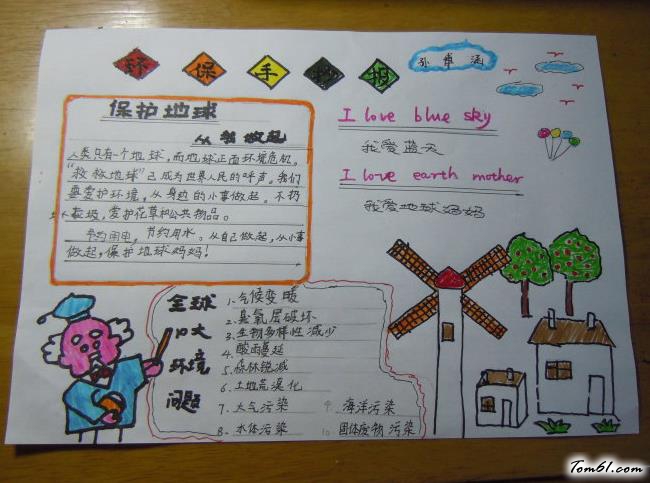 环保手抄报
孙卓涵
保护地球
从我做起
人类只有一个地球,而地球正面环境危机。
“救救地球”已成为世界人民的呼声。我们
要爱护环境,从身边的小事做起。不扔
垃圾,爱护花草和公共物品。
节约用电,节约用水。从自己做起,从小事
做起,保护地球妈妈!
I love blue sky
我爱蓝天
I love earth mother
我爱地球妈妈
全球
十大
环境
问题
1、气候变暖
2、臭氧层破坏
3、生物多样性减少
4、酸雨蔓延
5、森林锐减
6、土地荒漠化
7、大气污染
8、水体污染
9、海洋污染
10、固体废物污染
Tom61.com